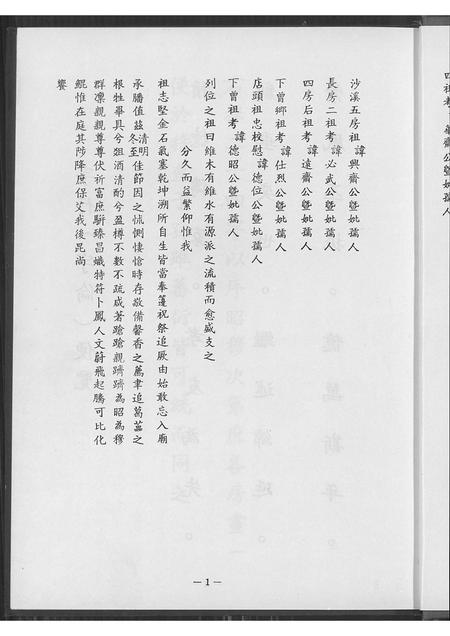 沙溪五房祖諱興齋公曁妣孺人
長房二祖考諱必武公曁妣孺人
四房后祖考諱遠齋公曁妣孺人
下曾鄉祖考諱仕烈公曁妣孺人
店頭祖忠校慰諱德位公曁妣孺人
下曾祖考諱德昭公曁妣孺人
列位之祖曰維木有維水有源派之流積而愈盛支之
分久而益繁仰惟我
祖志堅金石氣塞乾坤溯所自生皆當奉篷祝祭追厥由始敢忘入廟
承牅值玆清明冬至佳節因之怵惻悽愴時存敬備馨香之薦聿追葛藟之
根牲畢具兮俎酒清酌兮盈樽不數不疏咸著蹌蹌親躋躋為昭為穆
群凛親親尊尊伏祈富庶駢臻昌熾特符卜鳳人文蔚飛起騰可比化
鯤惟在庭其陟降庶保艾我後昆尚
饗
—1—